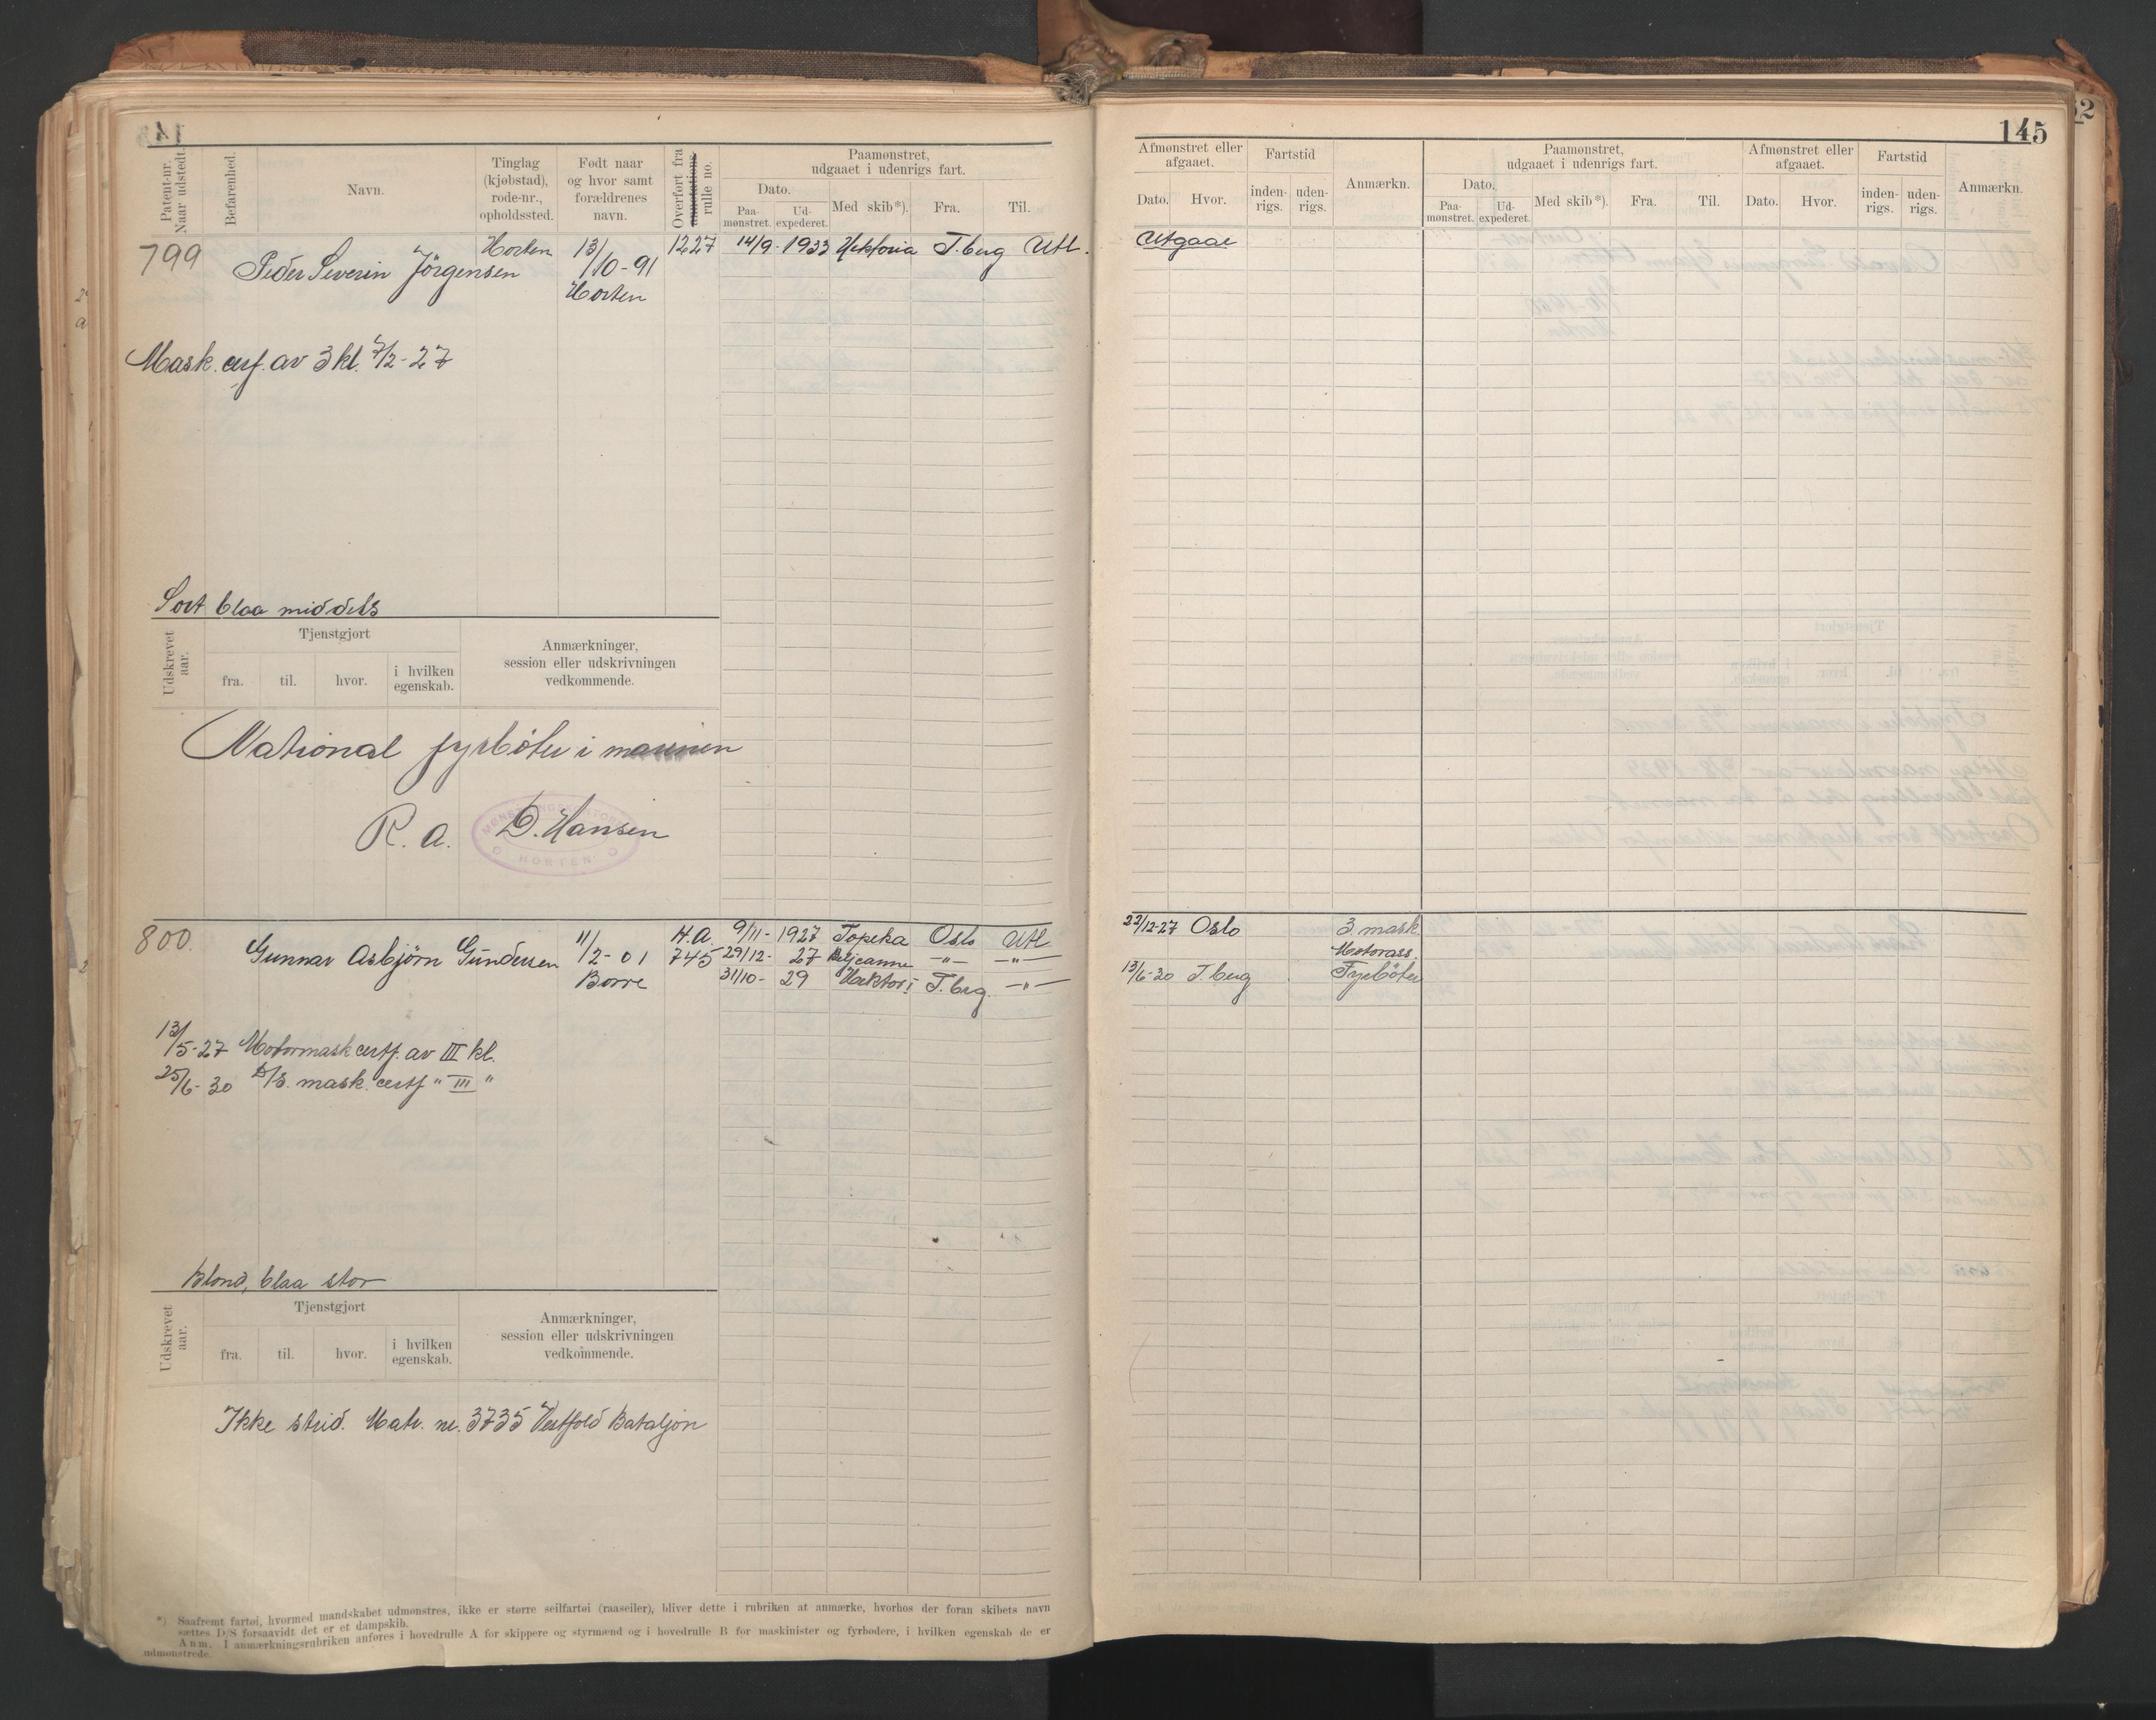 145
52
Patent-nr. Naar udstedt.
Befarenhed.
Navn.
Tinglag (kjøbstad), rode-nr., opholdssted.
Født naar og hvor samt forældrenes navn.
Overført fra annotations rulle no.
Paamønstret, udgaaet i udenrigs fart.
Dato.
Paa-mønstret.
Ud-expederet.
Med skib*).
Fra.
Til.
Afmønstret eller afgaaet.
Dato.
Hvor.
Fartstid
inden-rigs.
uden-rigs.
Anmærkn.
Paamønstret, udgaaet i udenrigs fart.
Dato.
Paa-mønstret.
Ud-expederet.
Med skib*).
Fra.
Til.
Afmønstret eller afgaaet.
Dato.
Hvor.
Fartstid
inden-rigs.
uden-rigs.
Anmærkn.
799 Peder Severin Jörgensen Horten 13/10-91 Horten 1227 14/9-1933 Hektoria T.berg Utl.
Utgaar
Mask. cerf. av 3 kl. 7/2-27
Sort blaa middels
Udskrevet aar.
Tjenstgjort
fra. til. hvor. i hvilken egenskab.
Anmærkninger, session eller udskrivningen vedkommende.
National fyrböter i marinen
R. a. D. Hansen
HORTEN
800. Gunnar Asbjørn Gundersen 11/2-01 Borre H.A. 745
9/11-1927 Topeka Oslo Utl 22/12-27 Oslo 3. mask.
29/12-27 Beljeanne -"- -"- Motorass.
31/10-29 Hektor I T.brg. -"- 13/6-30 T.berg Fyrböter
13/5-27 Motormask certf. av III kl.
25/6-30 D/S. mask. certf " III "
Blond, blaa stor
Udskrevet aar.
Tjenstgjort
fra. til. hvor. i hvilken egenskab.
Anmærkninger, session eller udskrivningen vedkommende.
Ikke strid. Matr. nr. 3735 Vestfold Bataljon
*) Saafremt fartøi, hvormed mandskabet udmønstres, ikke er større seilfartøi (raaseiler), bliver dette i rubriken at anmærke, hvorhos der foran skibets navn
sættes D/S forsaavidt det er et dampskib.
Anm. I anmærkningsrubriken anføres i hovedrulle A for skippere og styrmænd og i hovedrulle B for maskinister og fyrbødere, i hvilken egenskab de er
udmønstrede.